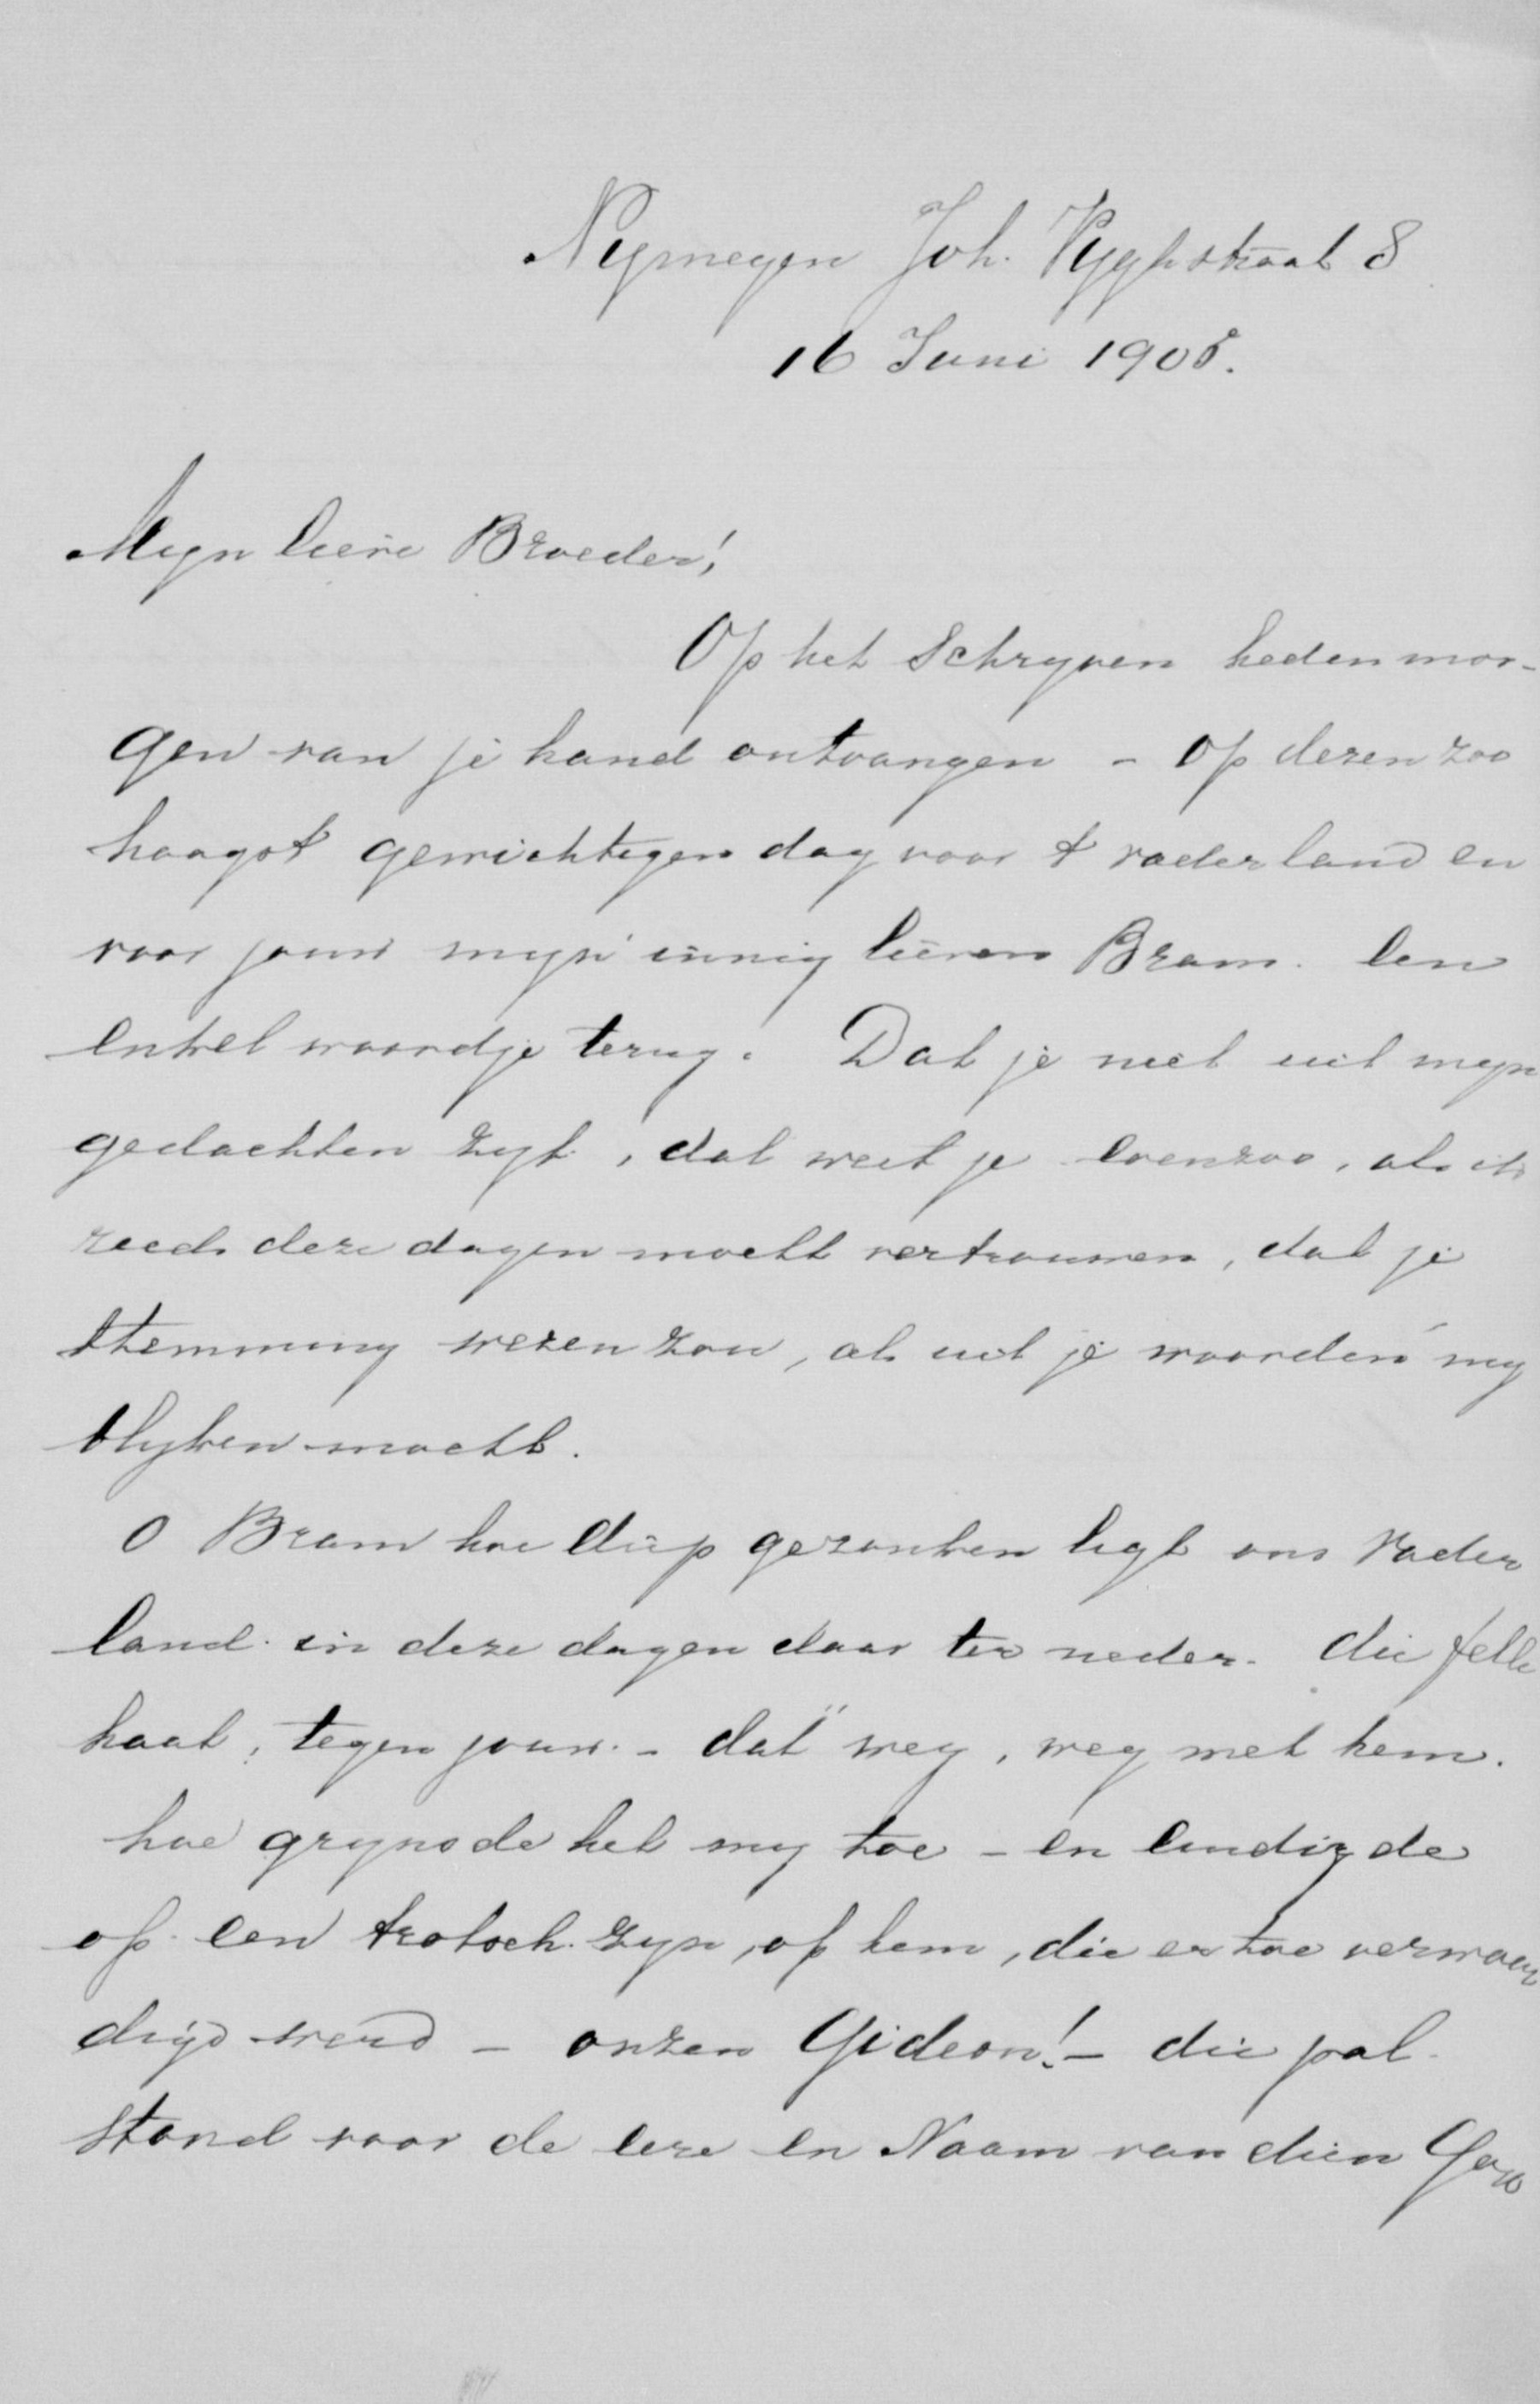 Nijmegen Joh. Vijghstraat 8
16 Juni 1905.
Mijn lieve Broeder!
Op het schrijven hedenmor-
gen van je hand ontvangen - op dezen zoo
hoogst gewichtigen dag voor 't vaderland en
voor jouw mijn innig lieven Bram. een
enkel woordje terug. Dat je niet uit mijn
gedachten zijt, dat weet je evenzoo, als ik
reeds deze dagen mocht vertrouwen, dat je
stemming wezen zou, als uit je woorden mij
blijken mocht.
O Bram hoe diep gezonken ligt ons Vader
land in deze dagen daar ter neder. die felle
haat, tegen jouw. - dat "weg, weg met hem.
hoe grijnsde het mij toe - en eindigde
op een trotsch zijn, op hem, die er toe verwaar
digd werd - onzen Gideon! - die pal
stond voor de eere en Naam van dien God